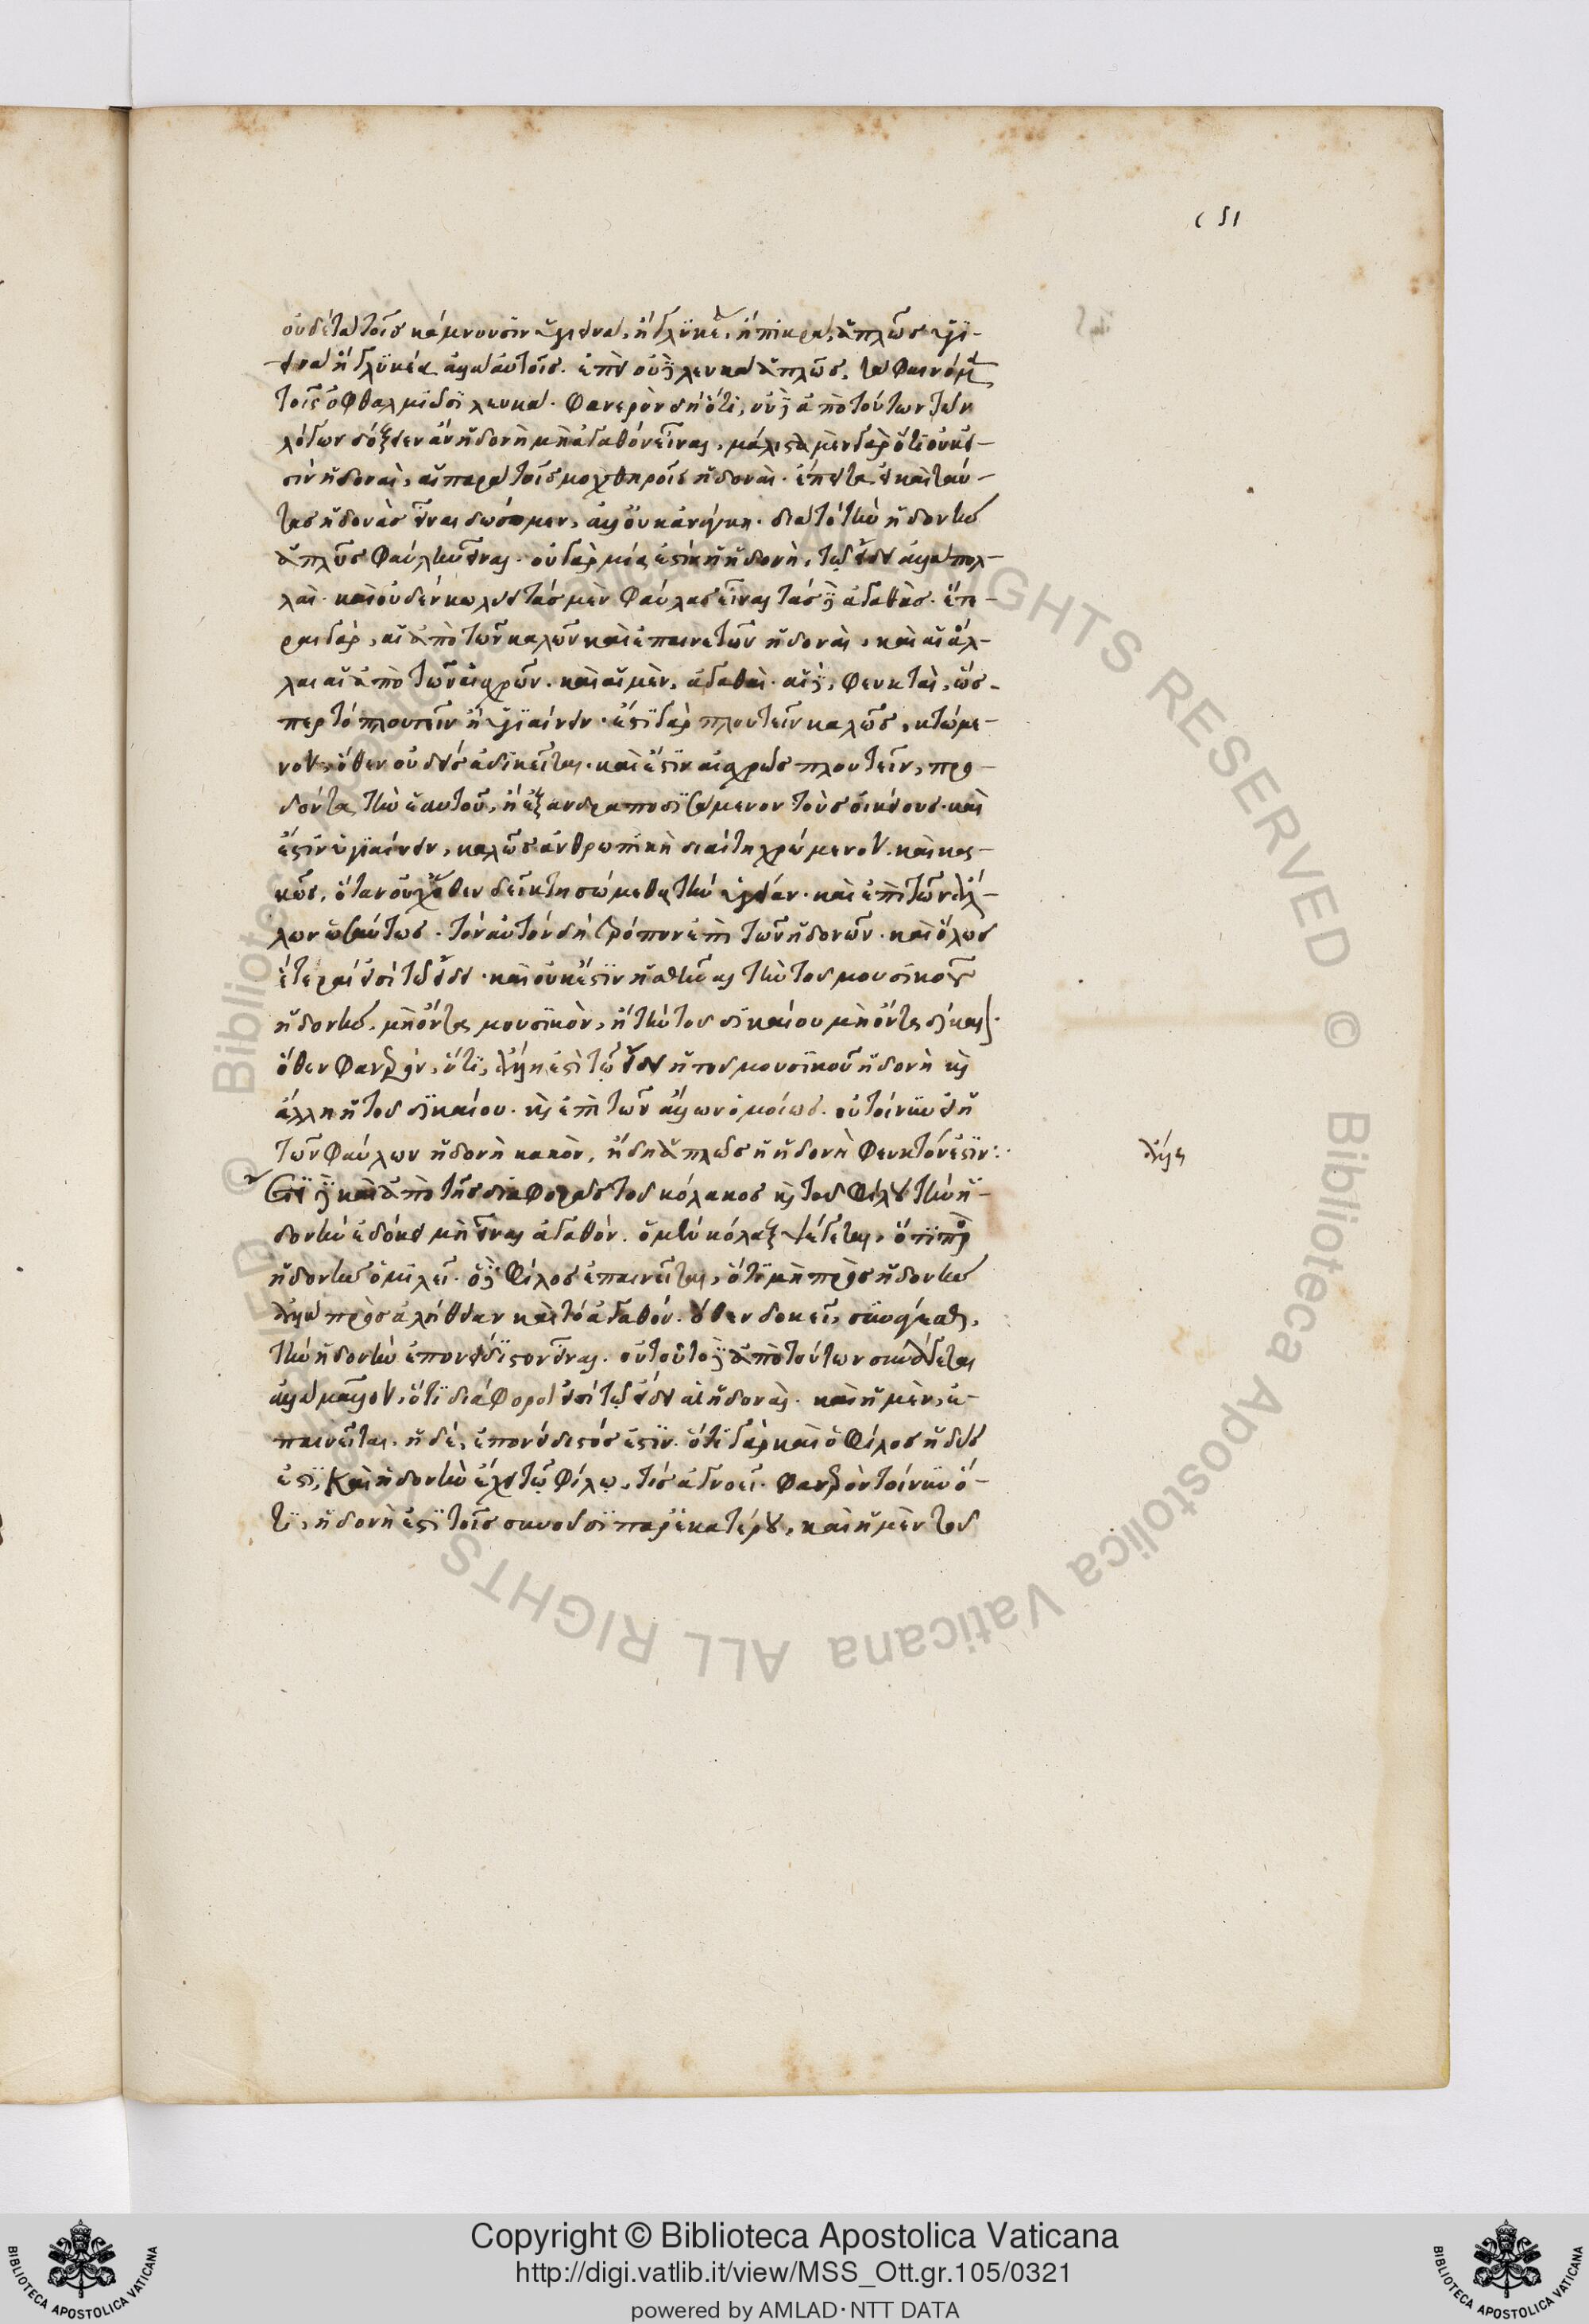 151
οὐδὲ τὰ τοῖς κάμνουσιν ὑγιεινὰ, ἢ γλυκέα, ἢ πικρὰ, ἁπλῶς ὑγι-
εινὰ ἢ γλυκέα ἀλλὰ αὐτοῖς. ἐπεὶ οὐδὲ λευκὰ ἁπλῶς, τὰ φαινόμενα
τοῖς ὀφθαλμιῶσι λευκά. φανερὸν δὴ ὅτι, οὐδὲ ἀπὸ τούτων τῶν
λόγων δόξειεν ἂν ἡδονὴ μὴ ἀγαθὸν εἶναι, μάλιστα μὲν γὰρ ὅτι οὐκ εἰ-
σὶν ἡδοναὶ, αἱ παρὰ τοῖς μοχθηροῖς ἡδοναί. ἔπειτα εἰ καὶ ταύ-
τας ἡδονὰς εἶναι δώσομεν, ἀλλ' οὐκ ἀνάγκη. διὰ τὸ τὴν ἡδονὴν
ἁπλῶς φαύλην εἶναι. οὐ γὰρ μία ἐστὶν ἡ ἡδονὴ, τῷ εἴδει ἀλλὰ πολ-
λαί. καὶ οὐδὲν κωλύει τὰς μὲν φαύλας εἶναι τὰς δὲ ἀγαθάς. ἕτε-
ραι γὰρ, αἱ ἀπὸ τῶν καλῶν καὶ ἐπαινετῶν ἡδοναὶ, καὶ αἱ ἄλ-
λαι αἱ ἀπὸ τῶν αἰσχρῶν. καὶ αἱ μὲν, ἀγαθαί. αἱ δὲ, φευκταὶ, ὥσ-
περ τὸ πλουτεῖν ἢ ὑγιαίνειν. ἔστι γὰρ πλουτεῖν καλῶς, κτώμε-
νον, ὅθεν οὐδεὶς ἀδικεῖται. καὶ ἔστιν αἰσχρῶς πλουτεῖν, προ-
δόντα τὴν ἑαυτοῦ, ἢ ἐξανδραποδισάμενον τοὺς οἰκείους. καὶ
ἔστιν ὑγιαίνειν, καλῶς ἀνθρωπικῇ διαίτῃ χρώμενον. καὶ κα-
κῶς, ὅταν οὐχ ὅθεν δεῖ κτησώμεθα τὴν ὑγείαν. καὶ ἐπὶ τῶν ἄλ-
λων ὡσαύτως. τὸν αὐτὸν δὴ τρόπον ἐπὶ τῶν ἡδονῶν. καὶ ὅλως
ἕτεραί εἰσι τῷ εἴδει. καὶ οὐκ ἔστιν ἡσθῆναι τὴν τοῦ μουσικοῦ
ἡδονὴν, μὴ ὄντα μουσικὸν, ἢ τὴν τοῦ δικαίου μὴ ὄντα δίκαιον.
ὅθεν φανερὸν, ὅτι, ἄλλη ἐστὶ τῷ εἴδει ἡ τοῦ μουσικοῦ ἡδονὴ καὶ
ἄλλη ἡ τοῦ δικαίου. καὶ ἐπὶ τῶν ἄλλων ὁμοίως. οὐ τοίνυν εἰ ἡ
τῶν φαύλων ἡδονὴ κακὸν, ἤδη ἁπλῶς ἡ ἡδονὴ φευκτόν ἐστιν:
ἄλλη
Ἔτι δὲ καὶ ἀπὸ τῆς διαφορᾶς τοῦ κόλακος καὶ τοῦ φίλου τὴν ἡ-
δονὴν ἐδόκει μὴ εἶναι ἀγαθόν. ὁ μὲν κόλαξ ψέγεται, ὅτι πρὸς
ἡδονὴν ὁμιλεῖ. ὁ δὲ φίλος ἐπαινεῖται, ὅτι μὴ πρὸς ἡδονὴν
ἀλλὰ πρὸς ἀλήθειαν καὶ τὸ ἀγαθόν. ὅθεν δοκεῖ, συνάγεσθαι,
τὴν ἡδονὴν ἐπονείδιστον εἶναι. οὐ τοῦτο δὲ ἀπὸ τούτων συνάγεται
ἀλλὰ μᾶλλον, ὅτι διάφοροί εἰσι τῷ εἴδει αἱ ἡδοναί. καὶ ἡ μὲν, ἐ-
παινεῖται. ἡ δὲ, ἐπονείδιστός ἐστιν. ὅτι γὰρ καὶ ὁ φίλος ἡδύς
ἐστι, καὶ ἡδονὴν ἔχει τῷ φίλῳ, τίς ἀγνοεῖ. φανερὸν τοίνυν ὅ-
τι, ἡδονή ἐστι τοῖς συνοῦσι παρ' ἑκατέρου, καὶ ἡ μὲν τοῦ
Copyright © Biblioteca Apostolica Vaticana
http://digi.vatlib.it/view/MSS_Ott.gr.105/0321
powered by AMLAD·NTT DATA